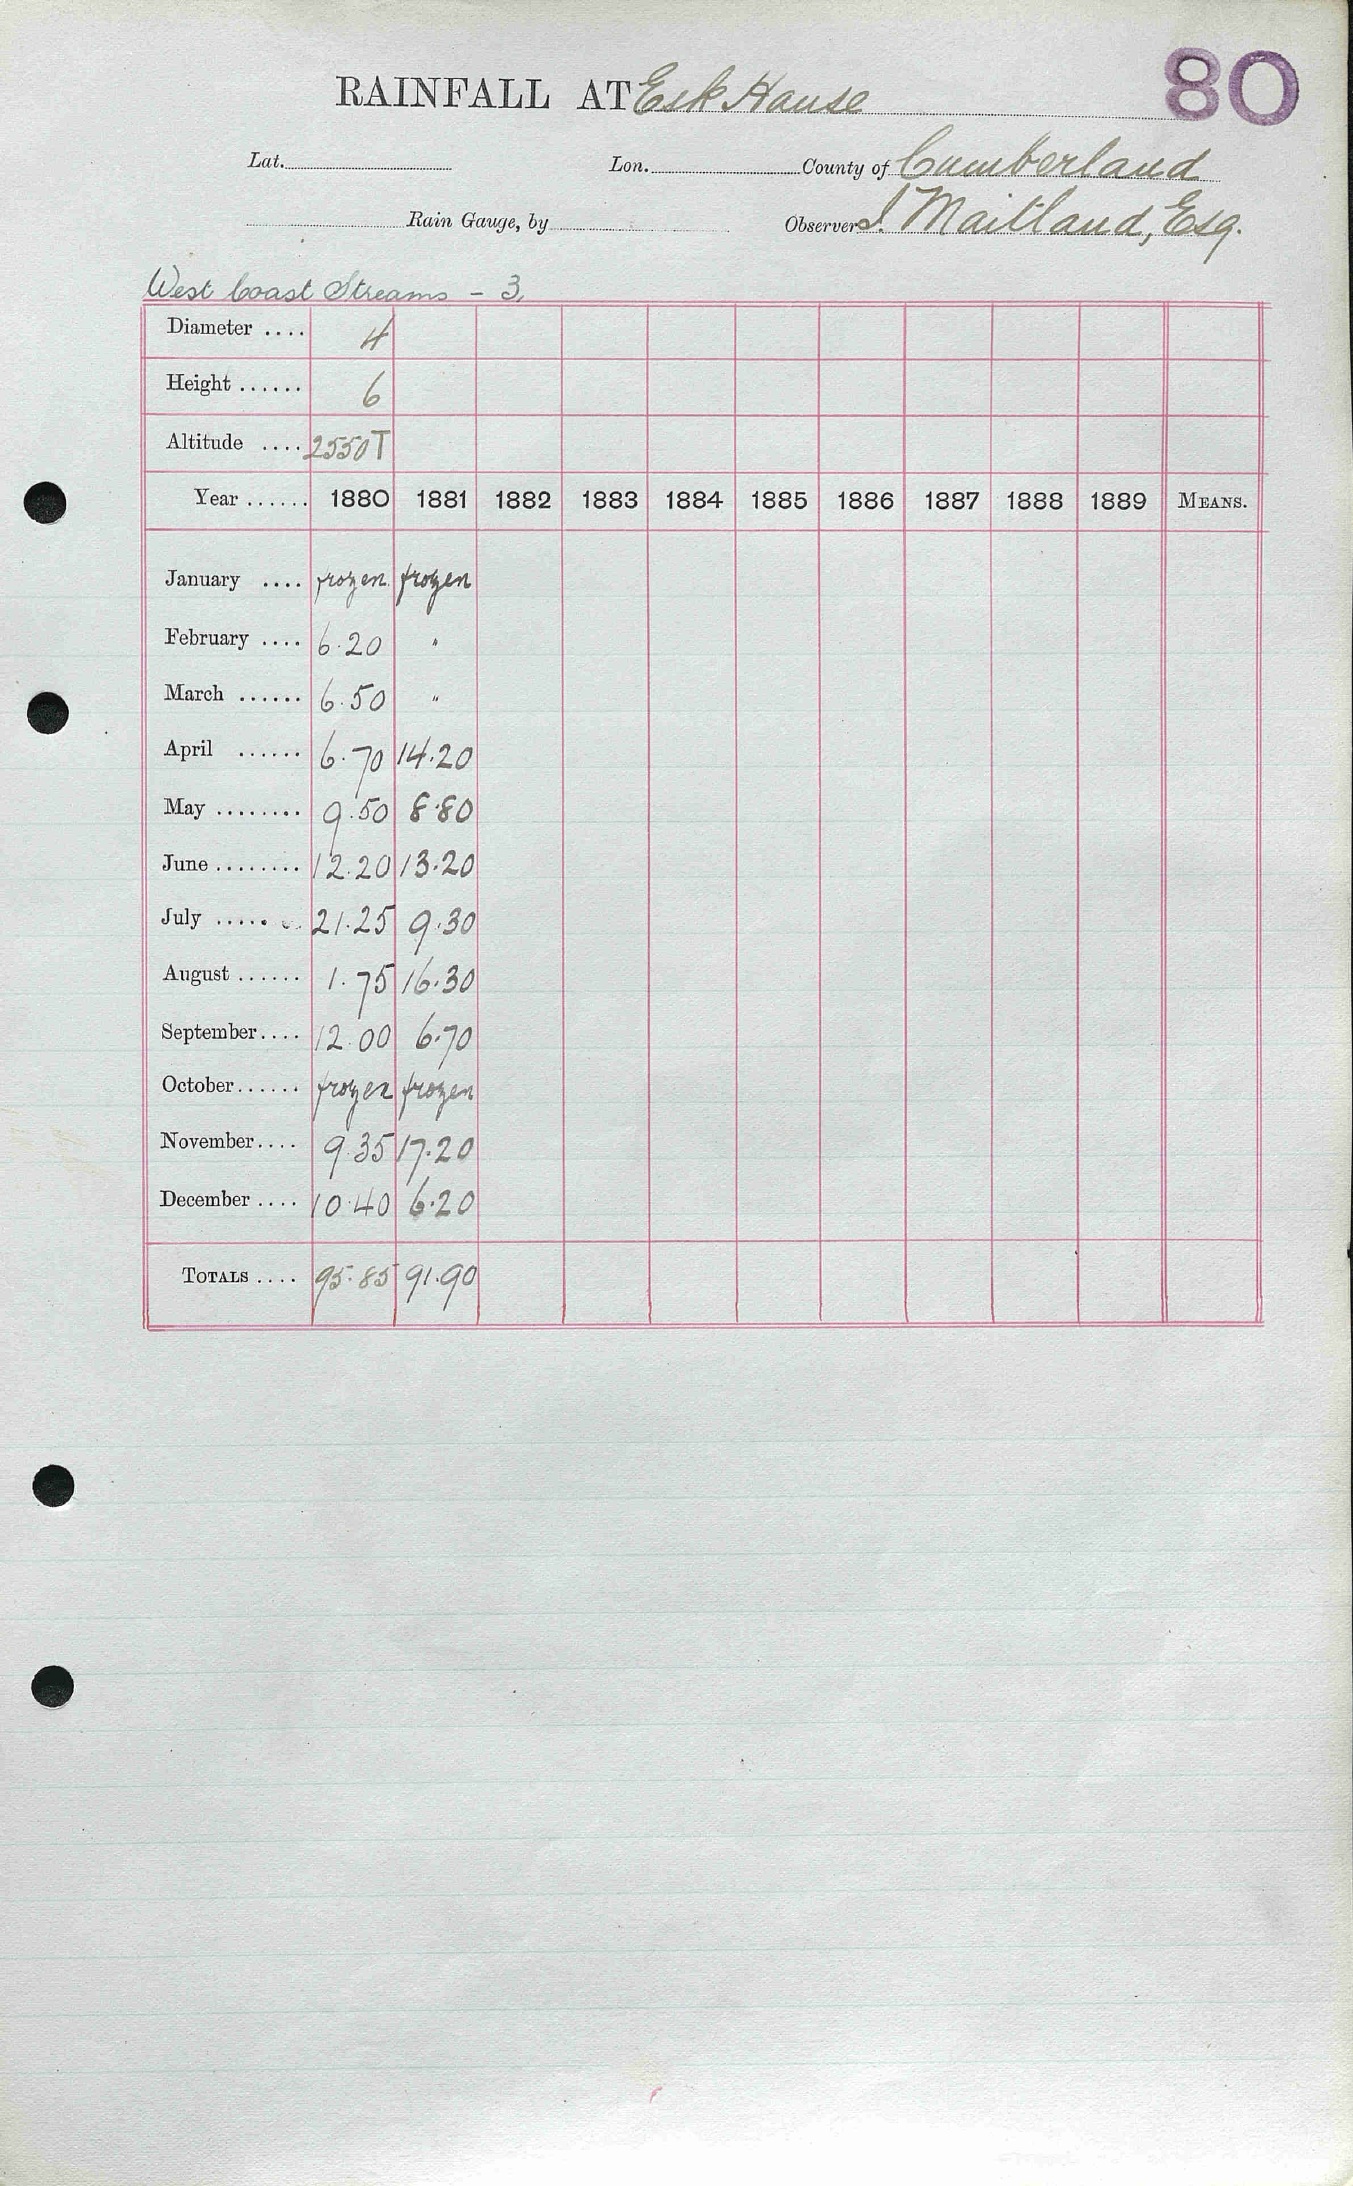 80
RAINFALL AT Esk Hause
Lat. Lon. County of Cumberland
Rain Gauge, by Observer I. Maitland, Esq.
West Coast Streams - 3.
Diameter .... 4
Height ...... 6
Altitude .... 2550T
Year ...... 1880 1881 1882 1883 1884 1885 1886 1887 1888 1889 MEANS.
January .... frozen frozen
February .... 6.20 "
March ...... 6.50 "
April ...... 6.70 14.20
May ........ 9.50 8.80
June ........ 12.20 13.20
July ........ 21.25 9.30
August ...... 1.75 16.30
September.... 12.00 6.70
October...... frozen frozen
November.... 9.35 17.20
December .... 10.40 6.20
TOTALS .... 95.85 91.90